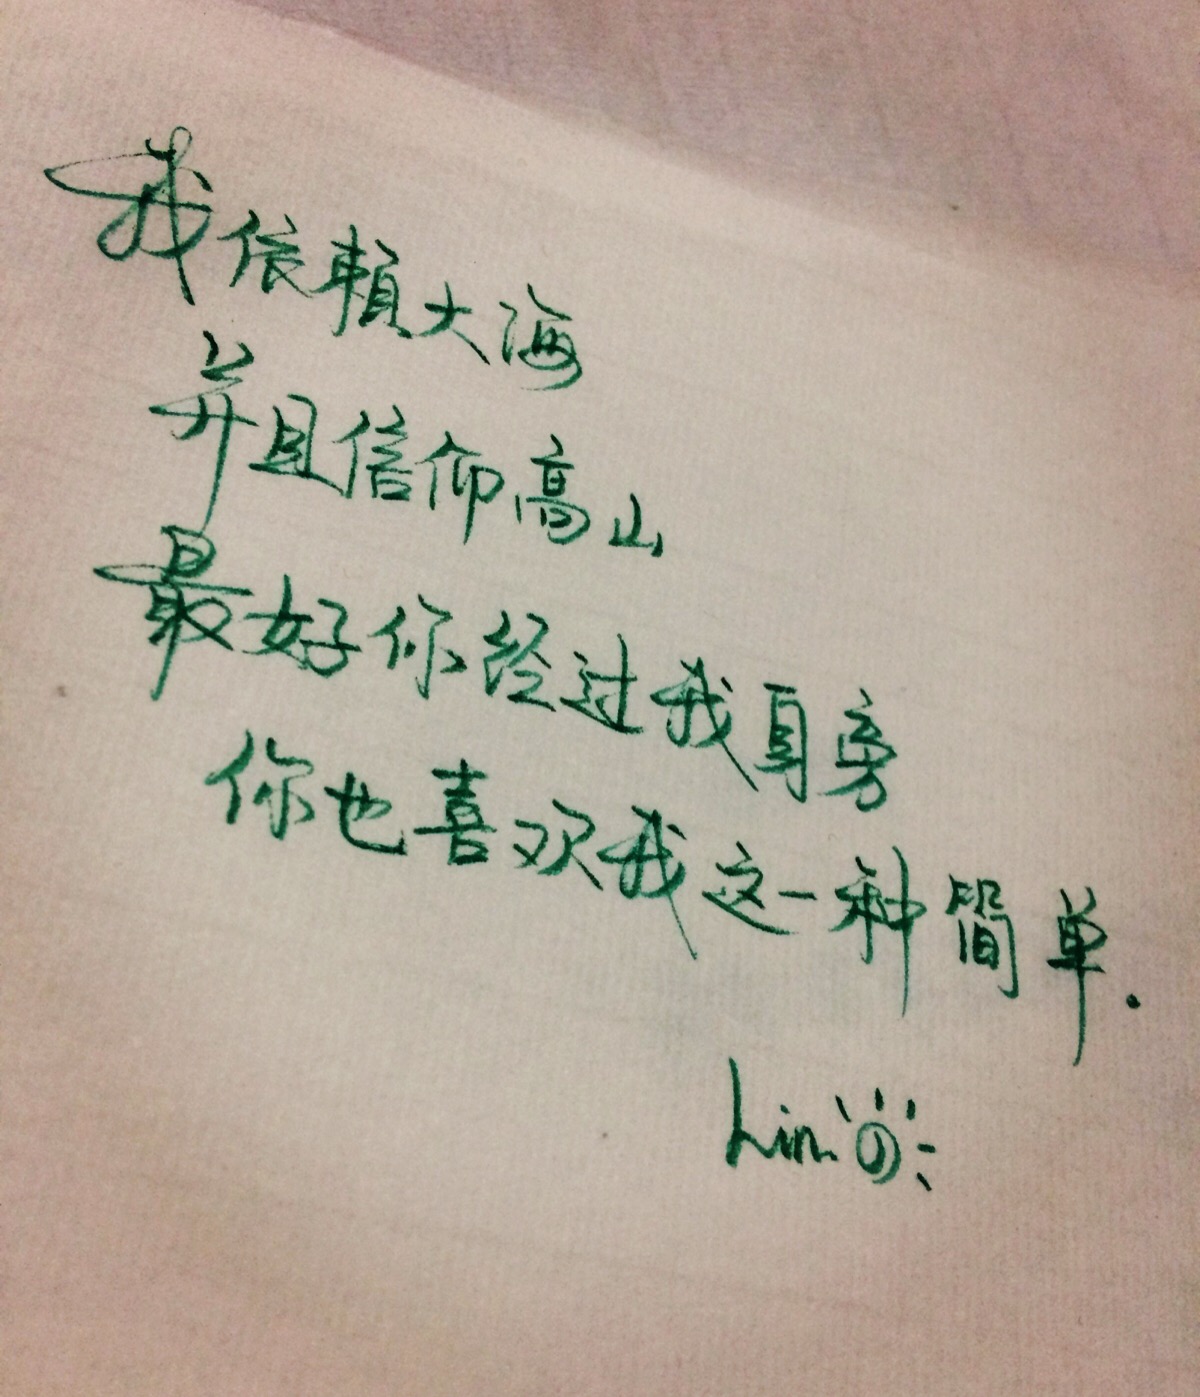 我依賴大海
并且信仰高山
最好你经过我身旁
你也喜欢我这一种简单.
Lin.